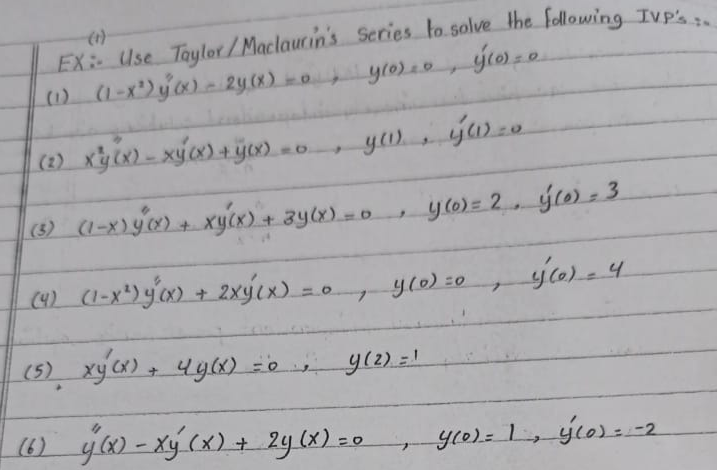 (1)
EX:- Use Taylor/Maclaurin's Series to solve the following IVP's :-
(1) (1-x²) y''(x) - 2y(x) = 0 , y(0) = 0 , y'(0) = 0
(2) x²y''(x) - xy'(x) + y(x) = 0 , y(1) , y'(1) = 0
(3) (1-x) y''(x) + xy'(x) + 3y(x) = 0 , y(0) = 2 , y'(0) = 3
(4) (1-x²) y''(x) + 2xy'(x) = 0 , y(0) = 0 , y'(0) = 4
(5) xy'(x) + 4y(x) = 0 , y(2) = 1
(6) y''(x) - xy'(x) + 2y(x) = 0 , y(0) = 1 , y'(0) = -2